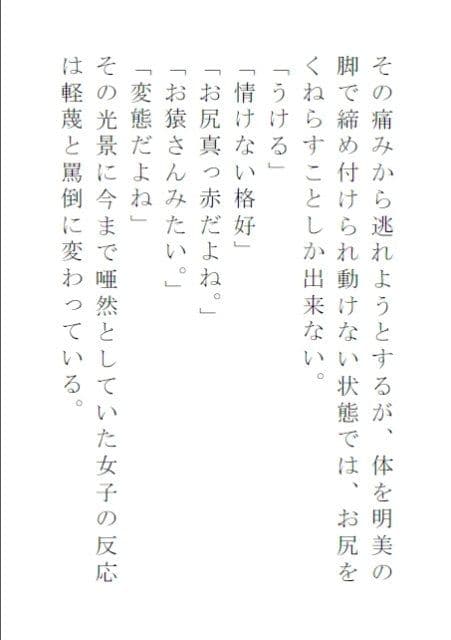 その痛みから逃れようとするが、体を明美の
脚で締め付けられ動けない状態では、お尻を
くねらすことしか出来ない。
「うける」
「情けない格好」
「お尻真っ赤だよね。」
「お猿さんみたい。」
「変態だよね」
その光景に今まで唖然としていた女子の反応
は軽蔑と罵倒に変わっている。